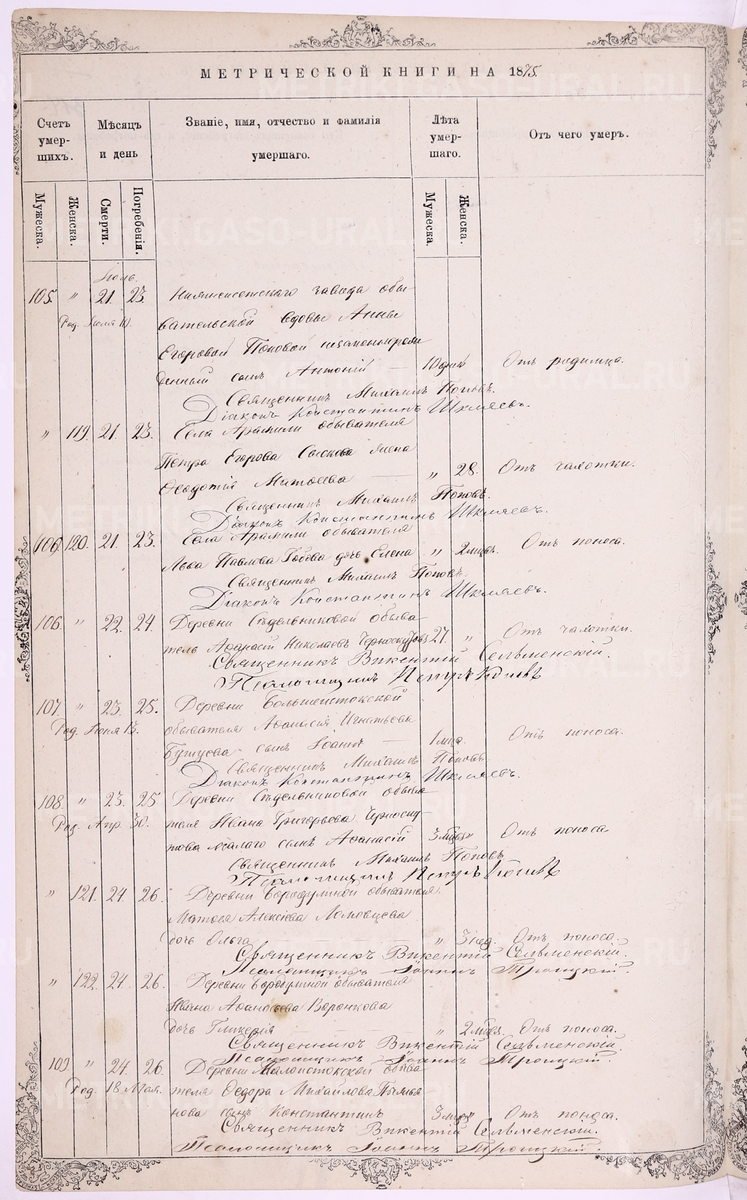 МЕТРИЧЕСКОЙ КНИГИ НА 1875.
Счетъ умер- шихъ. Мѣсяцъ и день Званіе, имя, отчество и фамилія умершаго. Лѣта умер- шаго. Отъ чего умеръ.
Мужеска. Женска. Смерти. Погребенія. Мужеска. Женска.
Іюль
105. " 21 23. Нижнеисетскаго завода обы
Род. Іюля 10. вательской вдовы Анны
Егоровой Поповой незаконнорож
денный сынъ Антоній 10 дней Отъ родимца.
Священникъ Михаилъ Поповъ.
Діаконъ Константинъ Шкляевъ.
" 119 21. 23. Села Арамили обывателя
Петра Егорова жена
Ѳеодотія " 28. Отъ чахотки.
Священникъ Михаилъ Поповъ.
Діаконъ Константинъ Шкляевъ.
120. 21. 23. Села Арамили обывателя
Льва Павлова дочь Елена " 2 мцев. Отъ поноса.
Священникъ Михаилъ Поповъ.
Діаконъ Константинъ Шкляевъ.
106. " 22. 24. Деревни Сѣдельниковой обыва
тель Аѳанасій Николаевъ Черноскутовъ 27 " Отъ чахотки.
Священникъ Викентій Сельменскій.
Псаломщикъ Петръ
107. " 23. 25. Деревни Большеистокской
Род. Іюня 13. обывателя Аѳанасія Игнатьева
сынъ Іоаннъ 1 мцъ. Отъ поноса.
Священникъ Михаилъ Поповъ.
Діаконъ Константинъ Шкляевъ.
108. " 23. 25 Деревни Сѣдельниковой обыва
Род. Апр. 30. теля Ивана Григорьева Черноску
това сынъ Аѳанасій 3 мцев " Отъ поноса
Священникъ Михаилъ Поповъ
Псаломщикъ Петръ
" 121. 24. 26. Деревни обывателя
Алексѣева
дочь Ольга " 3 нед. Отъ поноса.
Священникъ Викентій Сельменскій.
Псаломщикъ Іоаннъ Троицкій.
" 122. 24. 26. Деревни обывателя
Ивана Аѳанасьева Воронкова
дочь Гликерія " 2 мцев. Отъ поноса.
Священникъ Викентій Сельменскій.
Псаломщикъ Іоаннъ Троицкій.
109. " 24. 26. Деревни Малоистокской обыва
Род. 18 Мая. теля Ѳедора Михайлова
нова сынъ Константинъ 3 мцев Отъ поноса.
Священникъ Викентій Сельменскій.
Псаломщикъ Іоаннъ Троицкій.